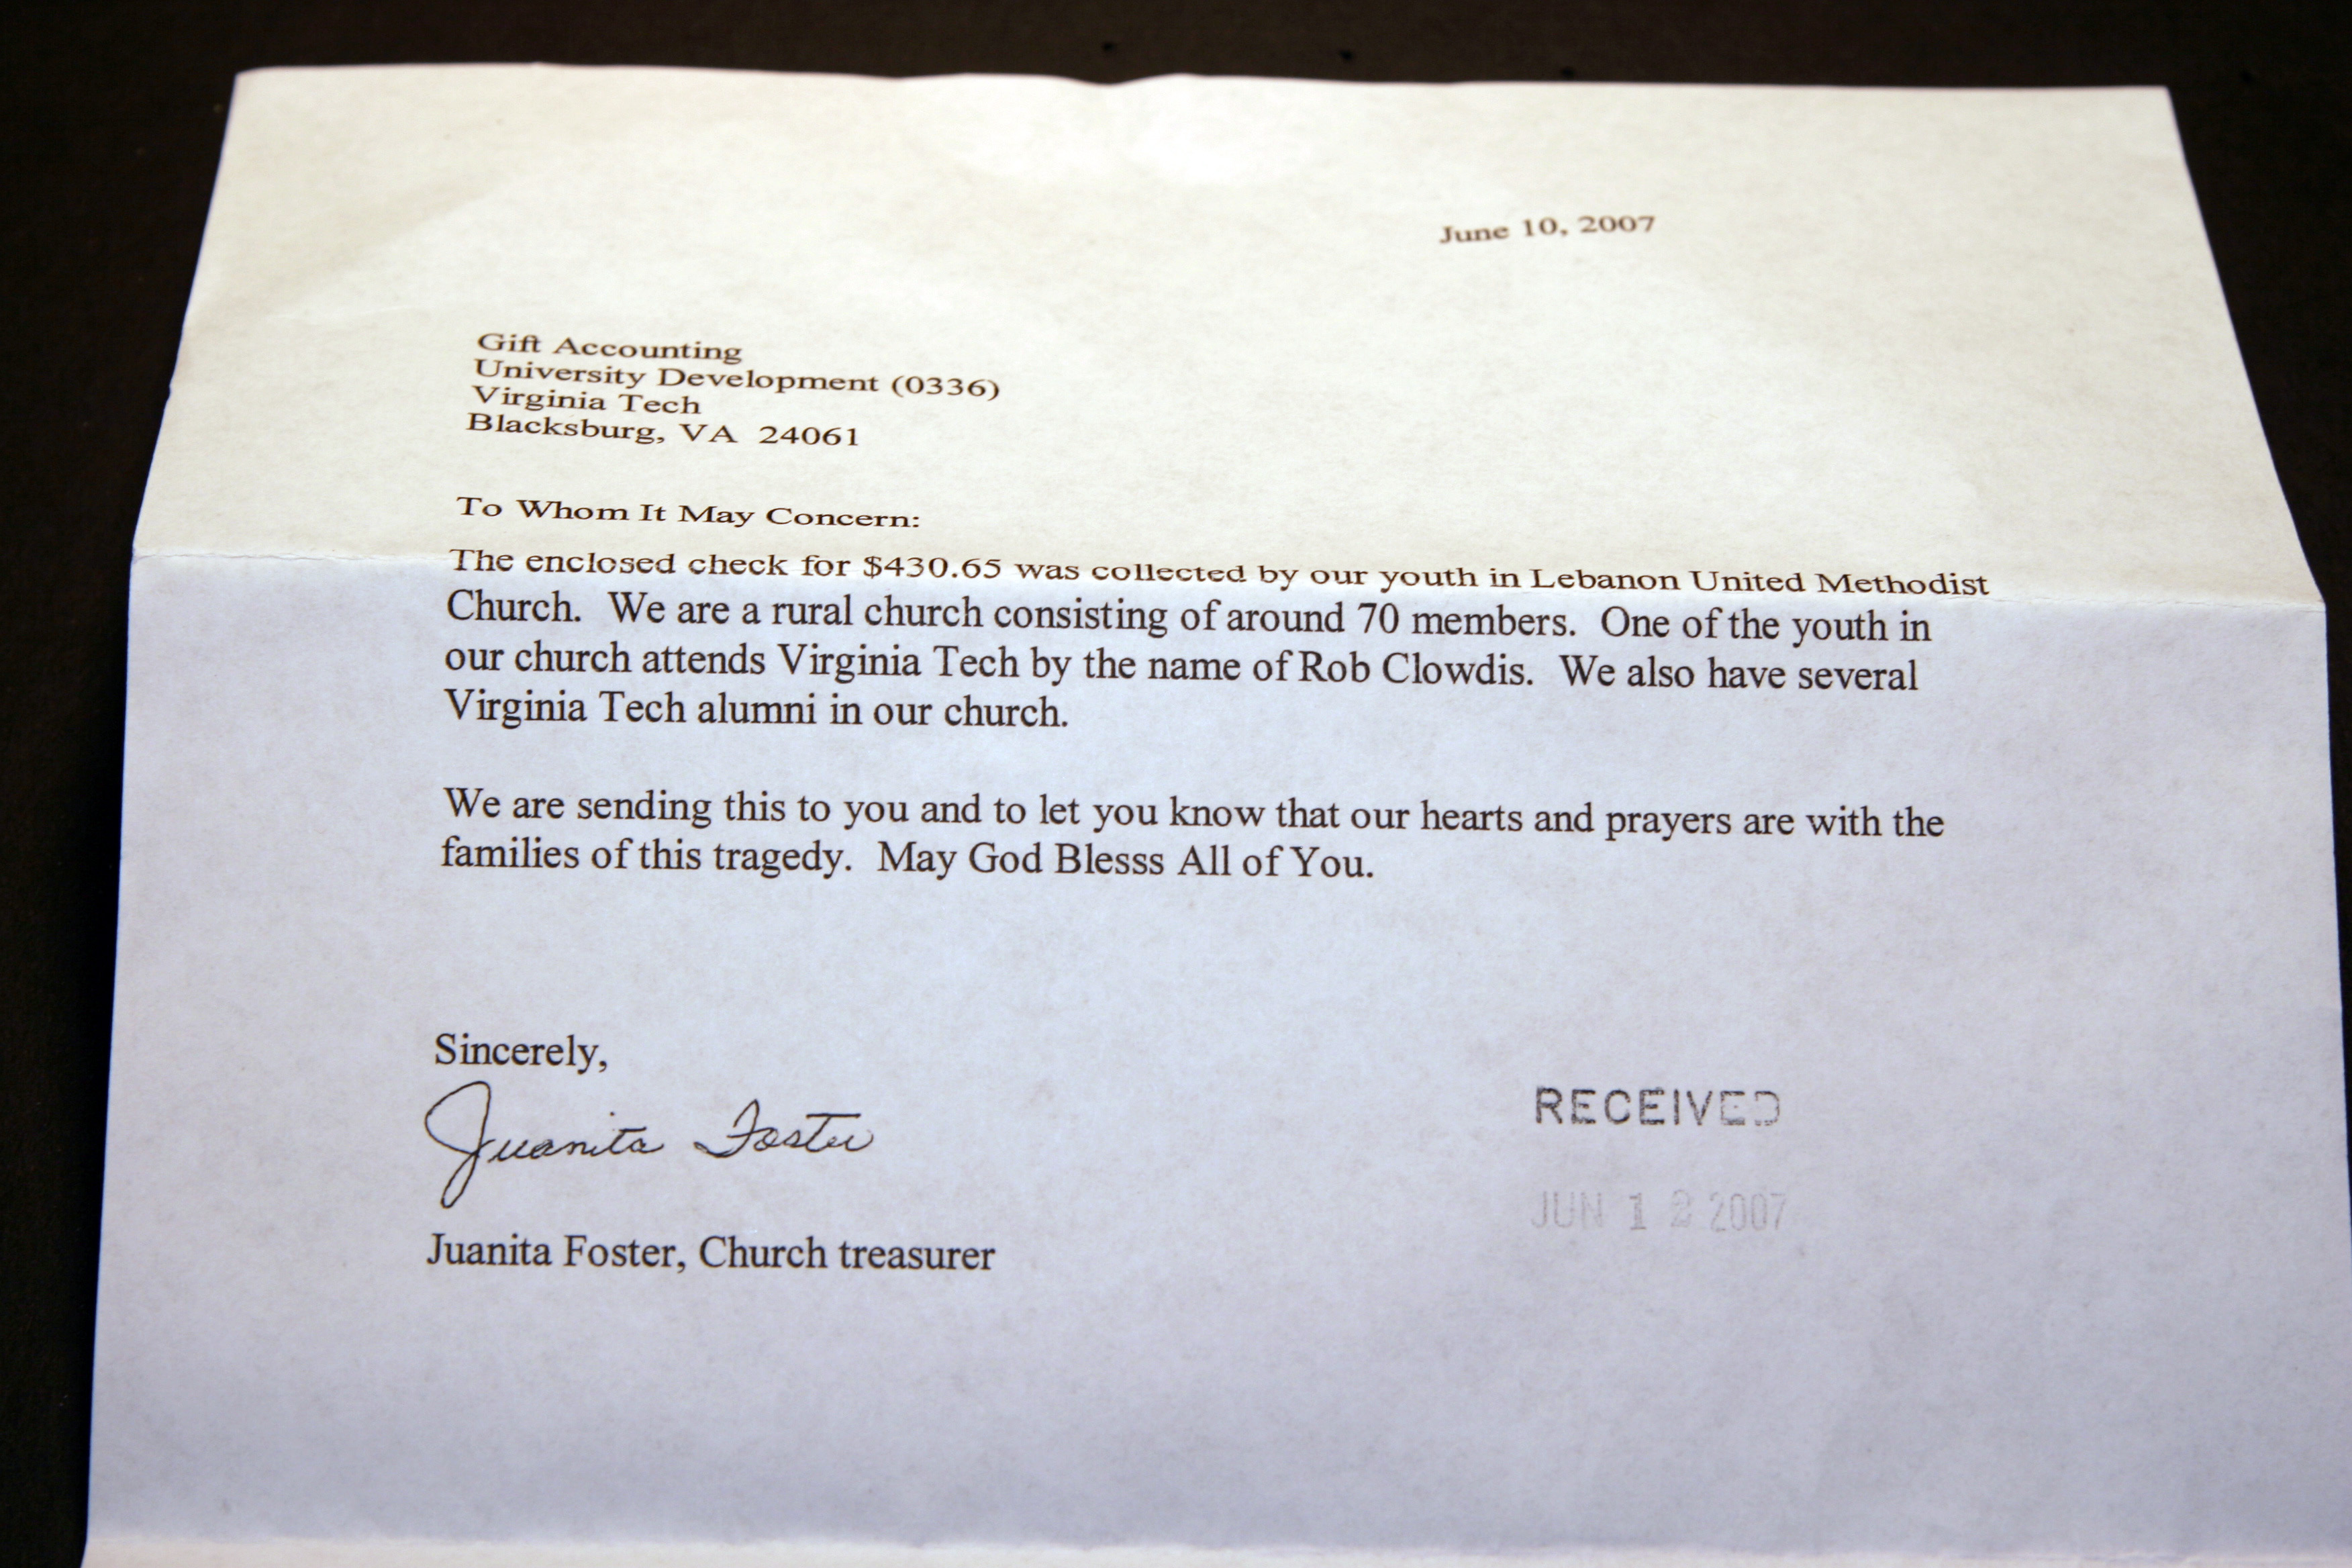 June 10, 2007
Gift Accounting
University Development (0336)
Virginia Tech
Blacksburg, VA  24061
To Whom It May Concern:
The enclosed check for $430.65 was collected by our youth in Lebanon United Methodist
Church.  We are a rural church consisting of around 70 members.  One of the youth in
our church attends Virginia Tech by the name of Rob Clowdis.  We also have several
Virginia Tech alumni in our church.
We are sending this to you and to let you know that our hearts and prayers are with the
families of this tragedy.  May God Blesss All of You.
Sincerely,
Juanita Foster
RECEIVED
JUN 12 2007
Juanita Foster, Church treasurer